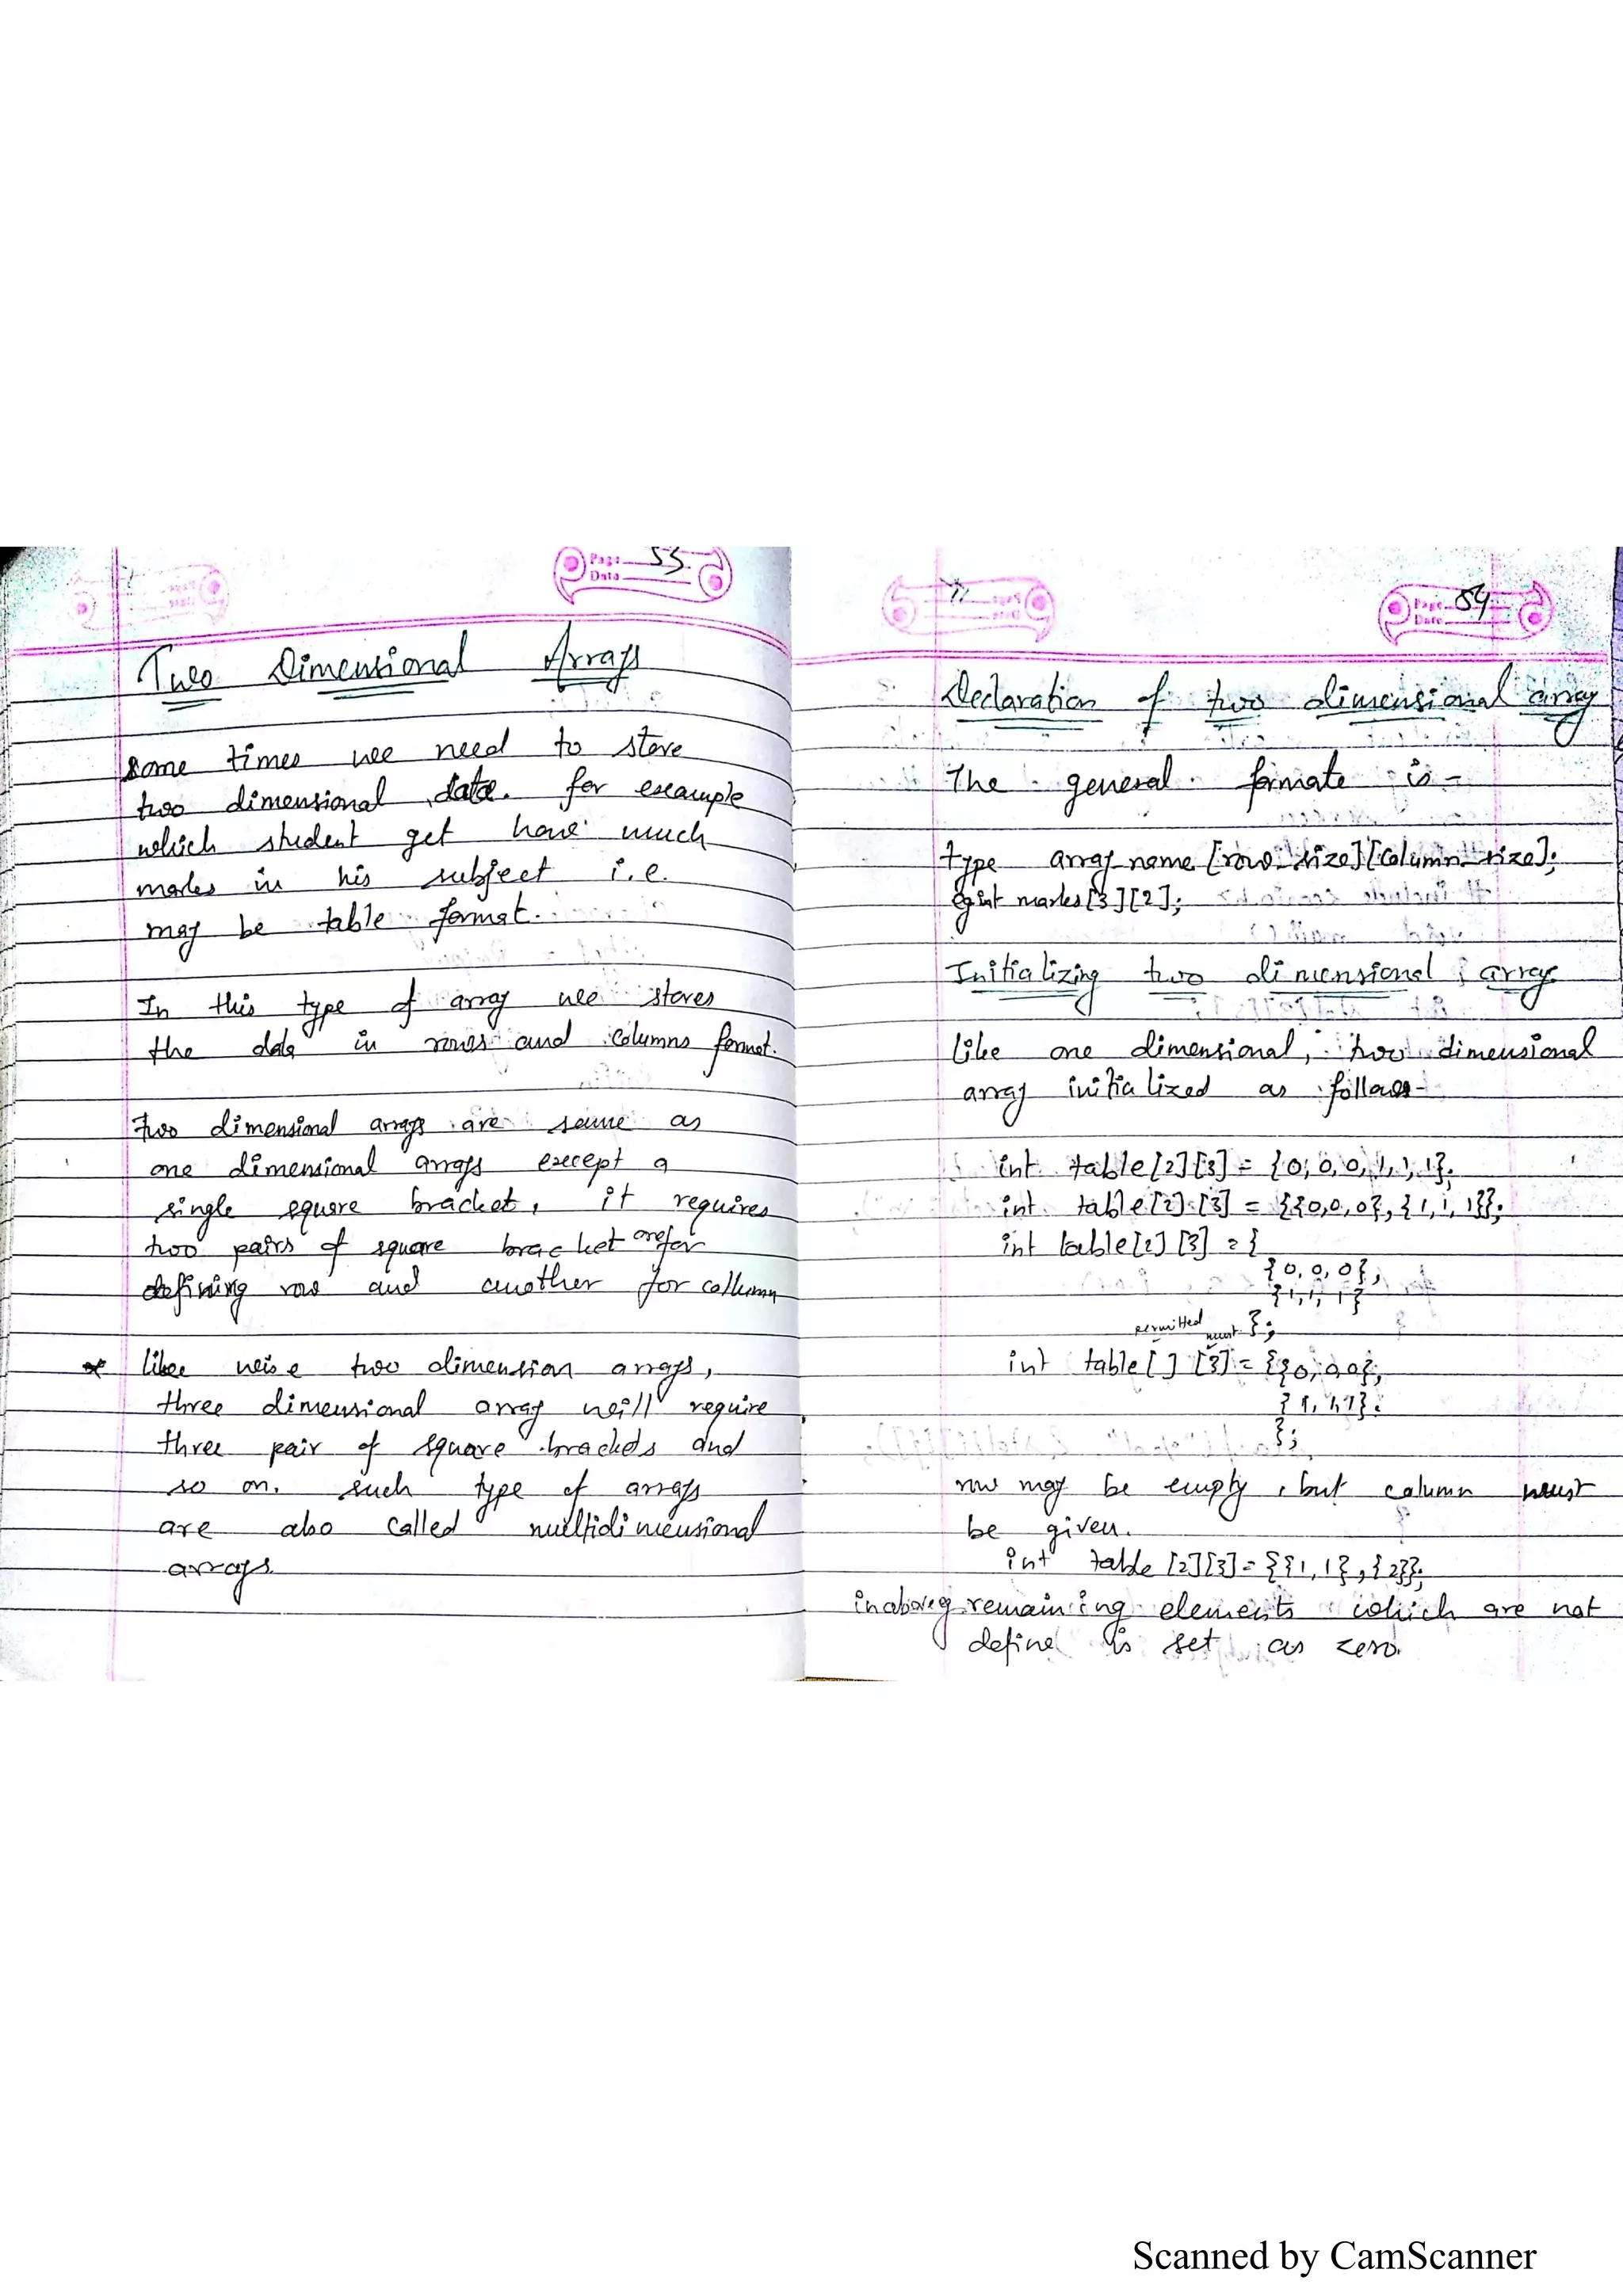 Page 53
Date
Two Dimensional Arrays
Some times we need to store
two dimensional data. for example
which student get have much
marks in his subject i.e.
may be table format.
In this type of array we stores
the data in rows and columns format.
two dimensional arrays are same as
one dimensional arrays except a
single square bracket, it requires
two pairs of square bracket one for
defining row and another for collumn
* like wise two dimension arrays,
three dimensional array will require
three pair of square brackets and
so on. such type of arrays
are also called multidimensional
arrays.
Page 54
Date
Declaration of two dimensional array
The general formate is -
type array name [row size][column size];
eg int marks[3][2];
Initializing two dimensional array
like one dimensional, two dimensional
array initialized as follows-
int table[2][3] = {0,0,0,1,1,1};
int table[2][3] = {{0,0,0},{1,1,1}};
int table[2][3] = {
{0,0,0},
{1,1,1}
};
permitted must
int table[ ][3] = {{0,0,0},
{1,1,1};
};
row may be empty, but column must
be given.
int table [2][3] = {{1,1},{2}};
in above remaining elements which are not
define is set as zero.
Scanned by CamScanner